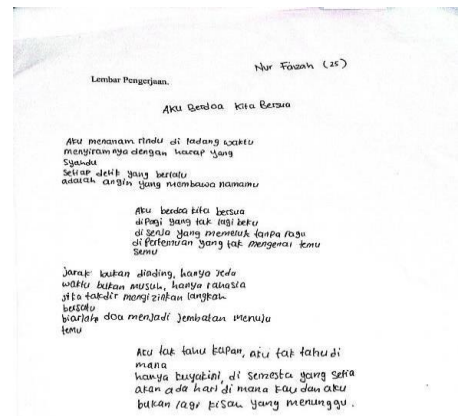 Nur Faizah (25)
Lembar Pengerjaan.
Aku Berdoa Kita Bersua
Aku menanam rindu di ladang waktu
menyiramnya dengan harap yang
syahdu
Setiap detik yang berlalu
adalah angin yang membawa namamu
Aku berdoa kita bersua
di pagi yang tak lagi beku
di senja yang memeluk tanpa ragu
di pertemuan yang tak mengenal temu
semu
jarak bukan dinding, hanya jeda
waktu bukan musuh, hanya rahasia
jika takdir mengizinkan langkah
bersatu
biarlah doa menjadi jembatan menuju
temu
Aku tak tahu kapan, aku tak tahu di
mana
hanya kuyakini, di semesta yang setia
akan ada hari di mana kau dan aku
bukan lagi kisah yang menunggu.